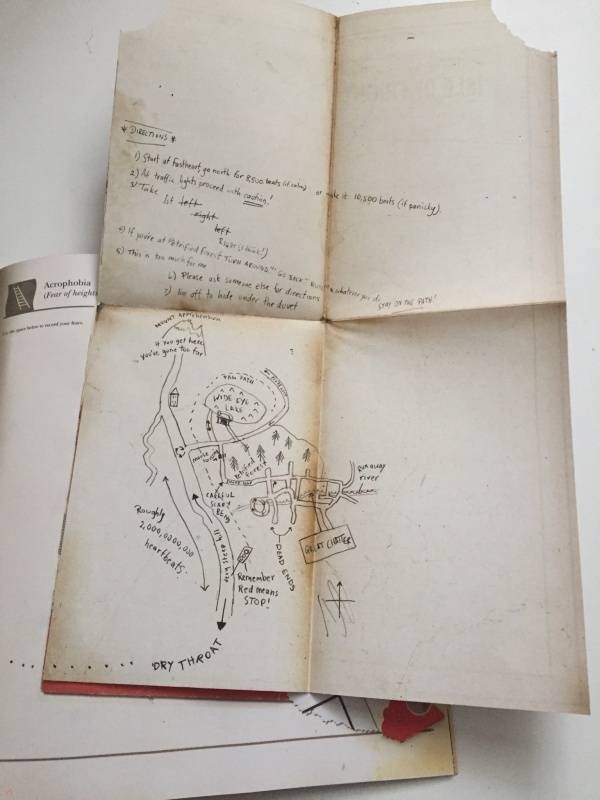 * DIRECTIONS *
1) Start at Fastheart, go north for 8500 beats (if calm) or make it 10,500 beats (if panicky).
2) At traffic lights proceed with caution!
3) Take
1st left
right
left
Right (I think!)
4) If you're at Petrified Forest TURN AROUND GO BACK whatever you do STAY ON THE PATH!
5) This is too much for me
6) Please ask someone else for directions
7) I'm off to hide under the duvet
Acrophobia
(Fear of heights
space below to record your fears.
MOUNT APPREHENSION
If you get here
you've gone too far
PAW PATH
WIDE EYE
LAKE
Petrified
Forest
Runaway
river
CAREFUL
SCARY
BEND
Roughly
2,000,000,000
heartbeats.
very steep hill
DEAD ENDS
GREAT CHATTER
Remember
Red means
STOP!
N
DRY THROAT